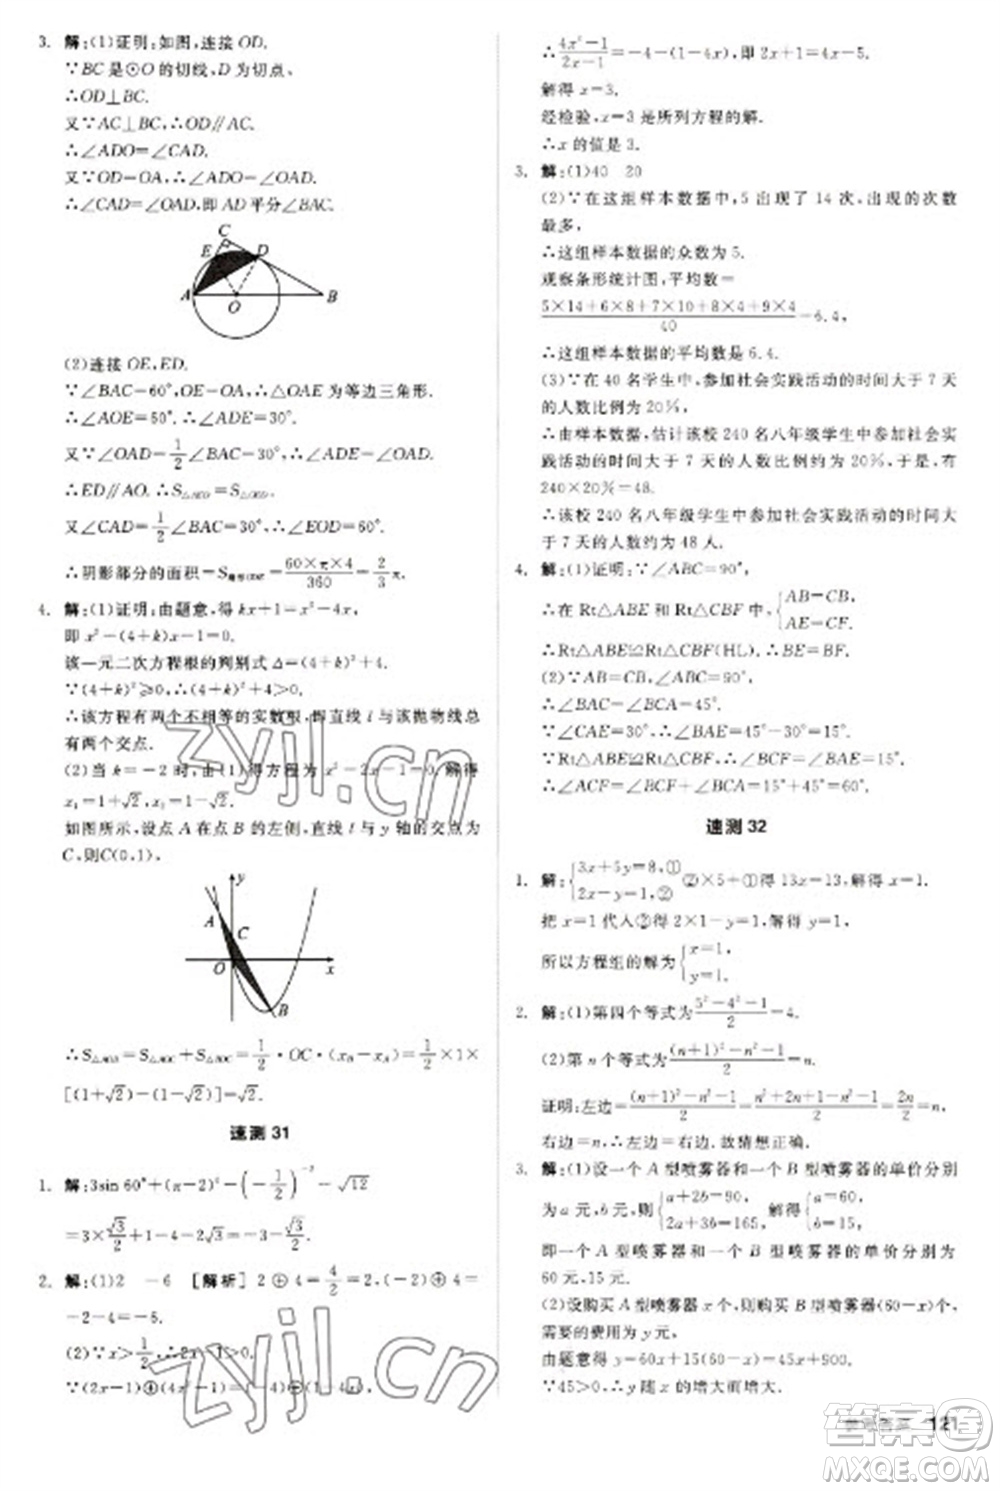 3. 解:(1)证明:如图,连接 OD.
∵BC 是⊙O 的切线,D 为切点、
∴OD⊥BC.
又∵AC⊥BC,∴OD∥AC.
∴∠ADO=∠CAD.
又∵OD=OA,∴∠ADO=∠OAD.
∴∠CAD=∠OAD,即 AD 平分∠BAC.
C
E D
A O B
(2)连接 OE,ED.
∵∠BAC=60°,OE=OA,∴△OAE 为等边三角形.
∴∠AOE=60°.∴∠ADE=30°.
又∵∠OAD=1/2∠BAC=30°,
∴ED∥AO.∴S△AED=S△OED.
又∠CAD=1/2∠BAC=30°,∴∠EOD=60°,
∴阴影部分的面积=S扇形ODE=60×π×4/360=2/3π.
4. 解:(1)证明:由题意,得 kx+1=x²-4x,
即 x²-(4+k)x-1=0,
该一元二次方程根的判别式 Δ=(4+k)²+4.
∵(4+k)²≥0,∴(4+k)²+4>0.
∴该方程有两个不相等的实数根,即直线 l 与该抛物线总
有两个交点.
(2)当 k=-2 时,由(1)得方程 x²-2x-1=0,解得
x₁=1+√2,x₂=1-√2.
如图所示,设点 A 在点 B 的左侧,直线 l 与 y 轴的交点为
C,则C(0,1).
y
A
C
O x
B
∴S△AOB=S△AOC+S△BOC=1/2·OC·(xB-xA)=1/2×1×
[(1+√2)-(1-√2)]=√2.
速测 31
1. 解:3sin 60°+(π-2)⁰-(-1/2)⁻²-√12
=3×√3/2+1-4-2√3=-3-√3/2.
2. 解:(1)2 -6 [解析] 2⊕4=4/2=2,(-2)⊕4=
-2-4=-6.
(2)∵x>1/2,∴2x-1>0.
∵(2x-1)⊕(4x²-1)=(2x-1)⊕(-4+1-4x),
∴4x²-1/2x-1=-4-(1-4x),即 2x+1=4x-5.
解得 x=3.
经检验,x=3 是所列方程的解.
∴x 的值是 3.
3. 解:(1)40 20
(2)∵在这组样本数据中,5 出现了 14 次,出现的次数
最多,
∴这组样本数据的众数为 5.
观察条形统计图,平均数=
5×14+6×8+7×10+8×4+9×4/40=6.4,
∴这组样本数据的平均数是 6.4.
(3)∵在 40 名学生中,参加社会实践活动的时间大于 7 天
的人数比例为 20%,
∴由样本数据,估计该校 240 名八年级学生中参加社会实
践活动的时间大于 7 天的人数比例约为 20%,于是,有
240×20%=48.
∴该校 240 名八年级学生中参加社会实践活动的时间大
于 7 天的人数约为 48 人.
4. 解:(1)证明:∵∠ABC=90°,
∴在 Rt△ABE 和 Rt△CBF 中,{AB=CB, AE=CF.
∴Rt△ABE≌Rt△CBF(HL).
(2)∵AB=CB,∠ABC=90°,
∴∠BAC=∠BCA=45°.
∵∠CAE=30°,∴∠BAE=45°-30°=15°.
∵Rt△ABE≌Rt△CBF,∴∠BCF=∠BAE=15°.
∴∠ACF=∠BCA+∠BCF=45°+15°=60°.
速测 32
1. 解:{3x+5y=8,① 2x-y=1,② ②×5+①得 13x=13,解得 x=1.
把 x=1 代入②得 2×1-y=1,解得 y=1.
所以方程组的解为{x=1, y=1.
2. 解:(1)第四个等式为5²-4²-1/2=4.
(2)第 n 个等式为(n+1)²-n²-1/2=n.
证明:左边=(n+1)²-n²-1/2=n²+2n+1-n²-1/2=2n/2=n,
右边=n,∴左边=右边.故猜想正确.
3. 解:(1)设一个 A 型喷雾器和一个 B 型喷雾器的单价分别
为 a 元,b 元,则{a+2b=90, 2a+3b=165,解得{a=60, b=15.
即一个 A 型喷雾器和一个 B 型喷雾器的单价分别为
60 元,15 元.
(2)设购买 A 型喷雾器 x 个,则购买 B 型喷雾器(60-x)个,
需要的费用为 y 元.
由题意得 y=60x+15(60-x)=45x+900.
∵45>0,∴y 随 x 的增大而增大.
参考答案 121
zyjl.cn
zyjl.cn
答案圈
MXQE.COM